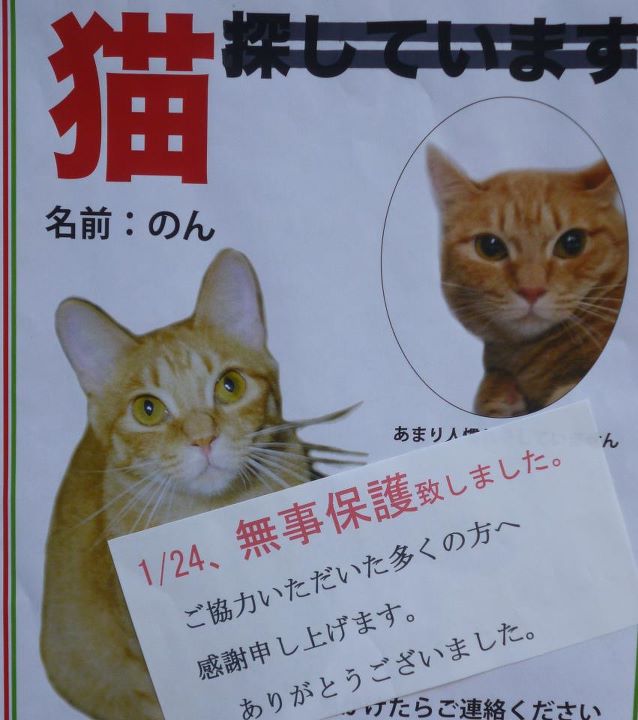 猫 探しています
名前：のん
あまり人
ん
1/24、無事保護致しました。
ご協力いただいた多くの方へ
感謝申し上げます。
ありがとうございました。
けたらご連絡ください